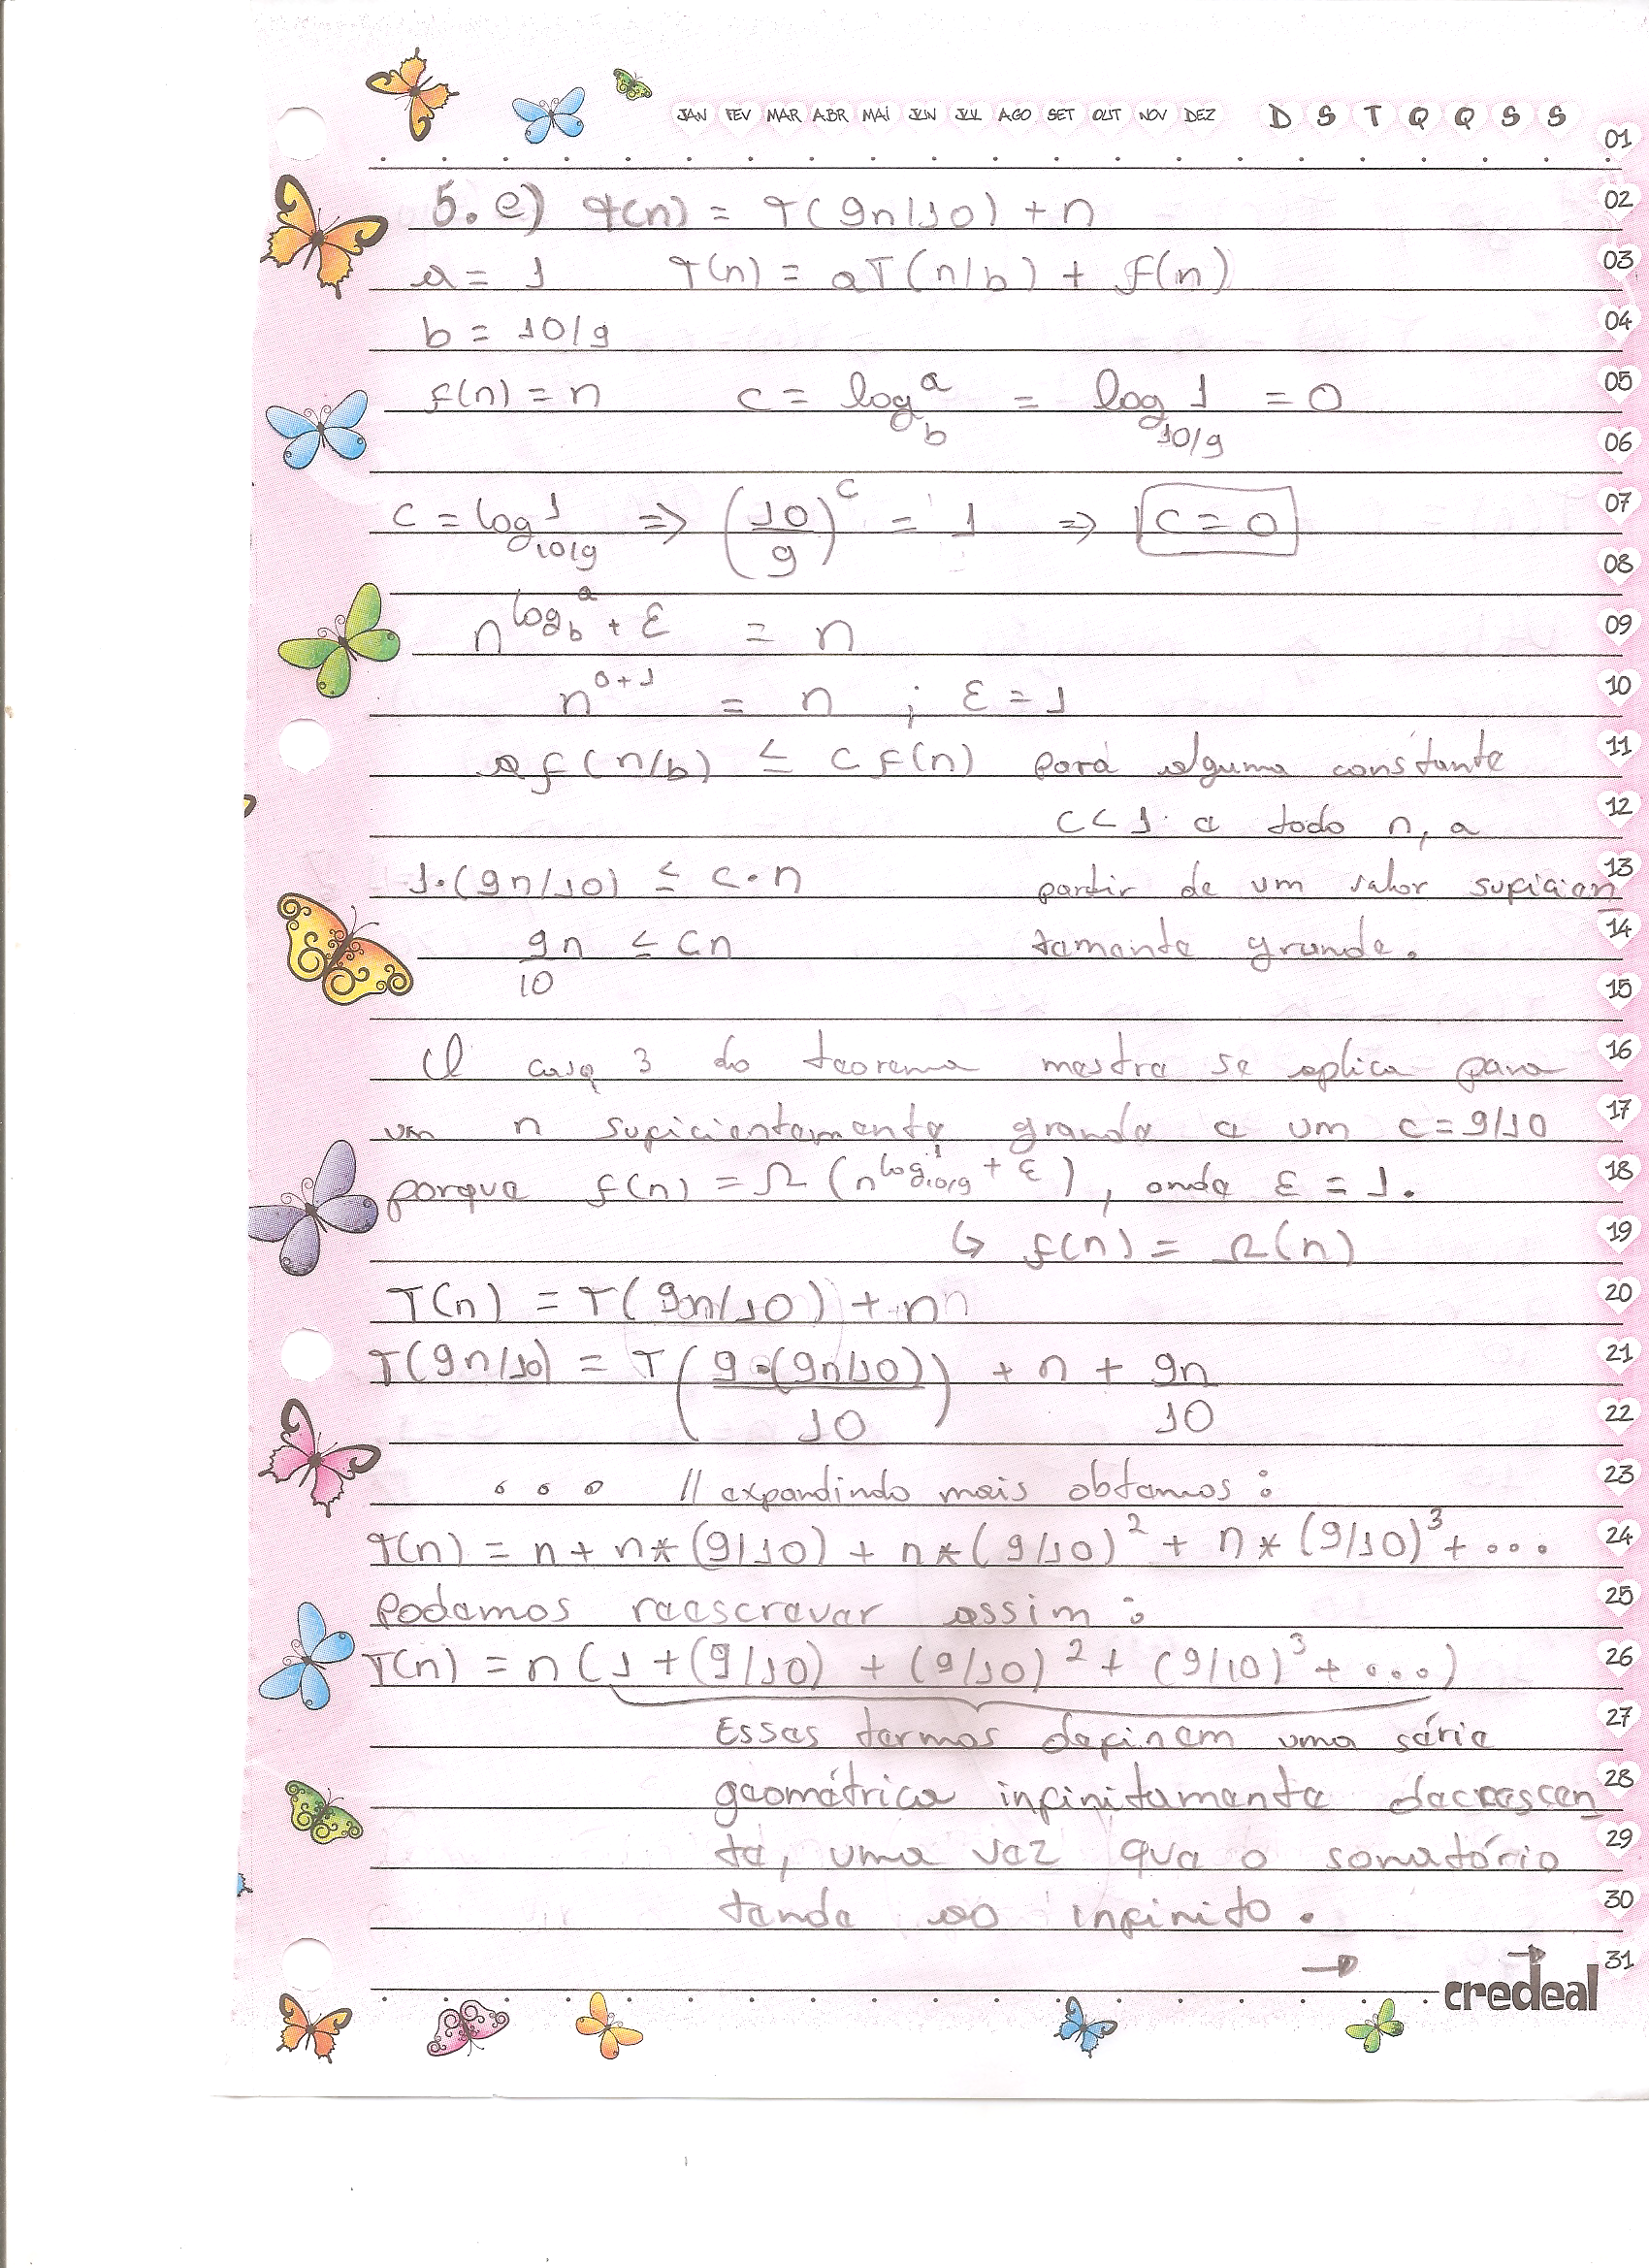 JAN FEV MAR ABR MAI JUN JUL AGO SET OUT NOV DEZ D S T Q Q S S
01
5. e) T(n) = T(9n/10) + n 02
a = 1 T(n) = aT(n/b) + f(n) 03
b = 10/9 04
f(n) = n c = log_b a = log_10/9 1 = 0 05
06
c = log_10/9 1 => (10/9)^c = 1 => c = 0 07
08
n^log_b a + ε = n 09
n^0+1 = n ; ε = 1 10
a f(n/b) ≤ c f(n) para alguma constante 11
c < 1 e todo n, a 12
1·(9n/10) ≤ c·n partir de um valor suficien 13
9n/10 ≤ cn temente grande. 14
15
O caso 3 do teorema mestre se aplica para 16
um n suficientemente grande e um c = 9/10 17
porque f(n) = Ω(n^log_10/9 1 + ε), onde ε = 1. 18
↳ f(n) = Ω(n) 19
T(n) = T(9n/10) + n 20
T(9n/10) = T(9·(9n/10)/10) + n + 9n/10 21
22
... // expandindo mais obtemos: 23
T(n) = n + n*(9/10) + n*(9/10)^2 + n*(9/10)^3 + ... 24
Podemos reescrever assim: 25
T(n) = n(1 + (9/10) + (9/10)^2 + (9/10)^3 + ...) 26
Esses termos definem uma série 27
geométrica infinitamente decrescen 28
te, uma vez que o somatório 29
tende ao infinito. 30
→ 31
credeal